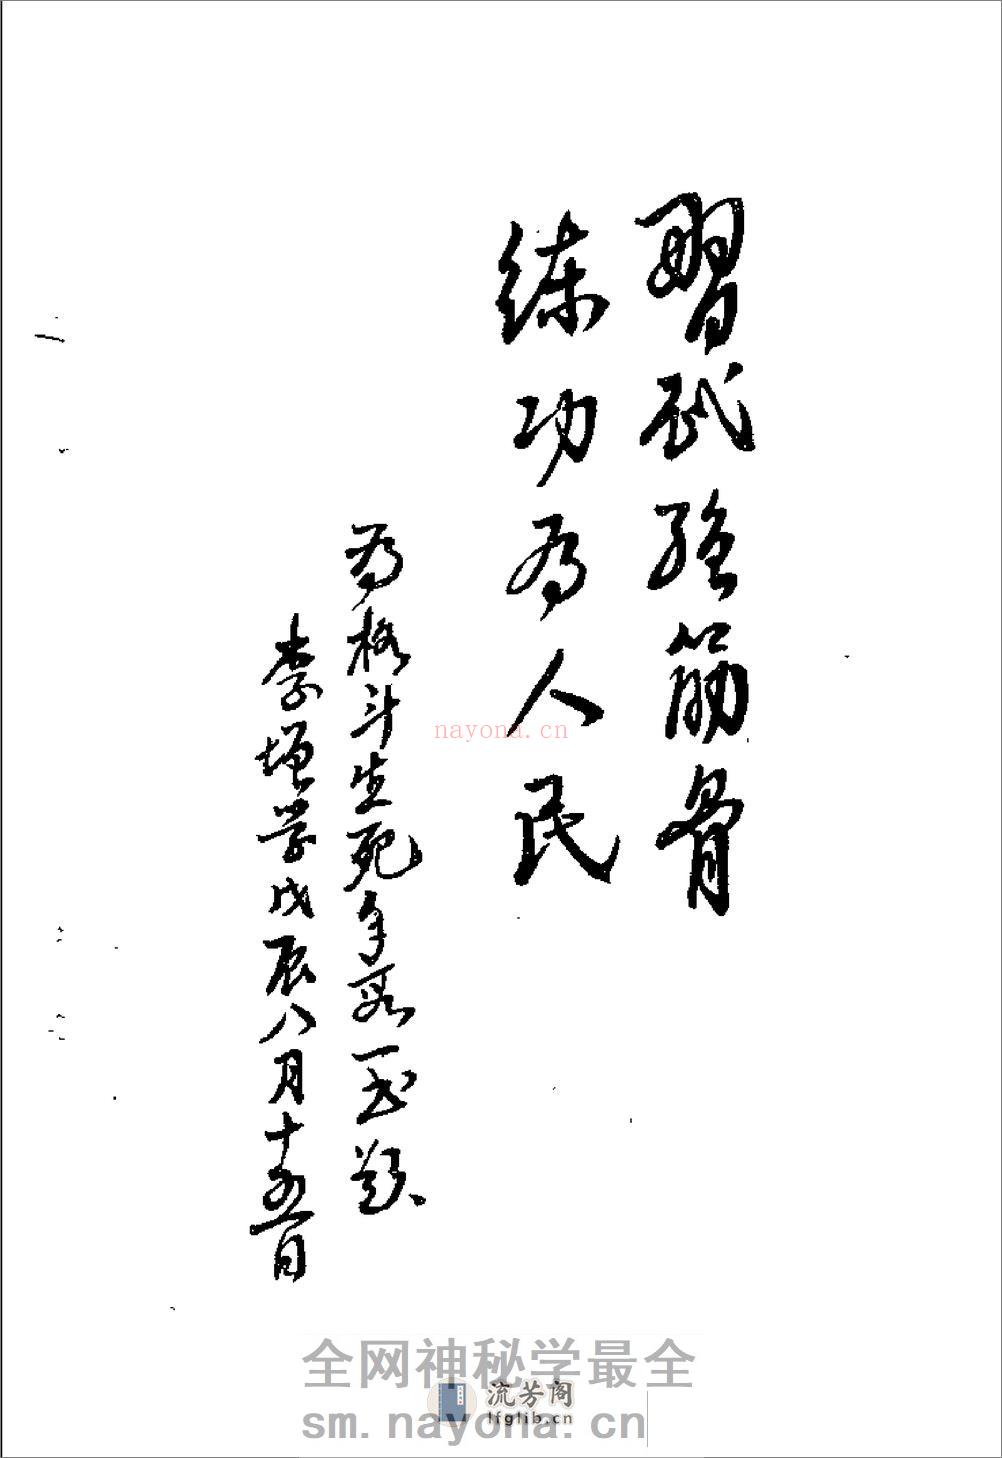 習武强筋骨
练功为人民
为格斗生死手段一书题
李增学戊辰八月十五日
nayona.cn
全网神秘学最全
流芳阁
lfglib.cn
sm.nayona.cn